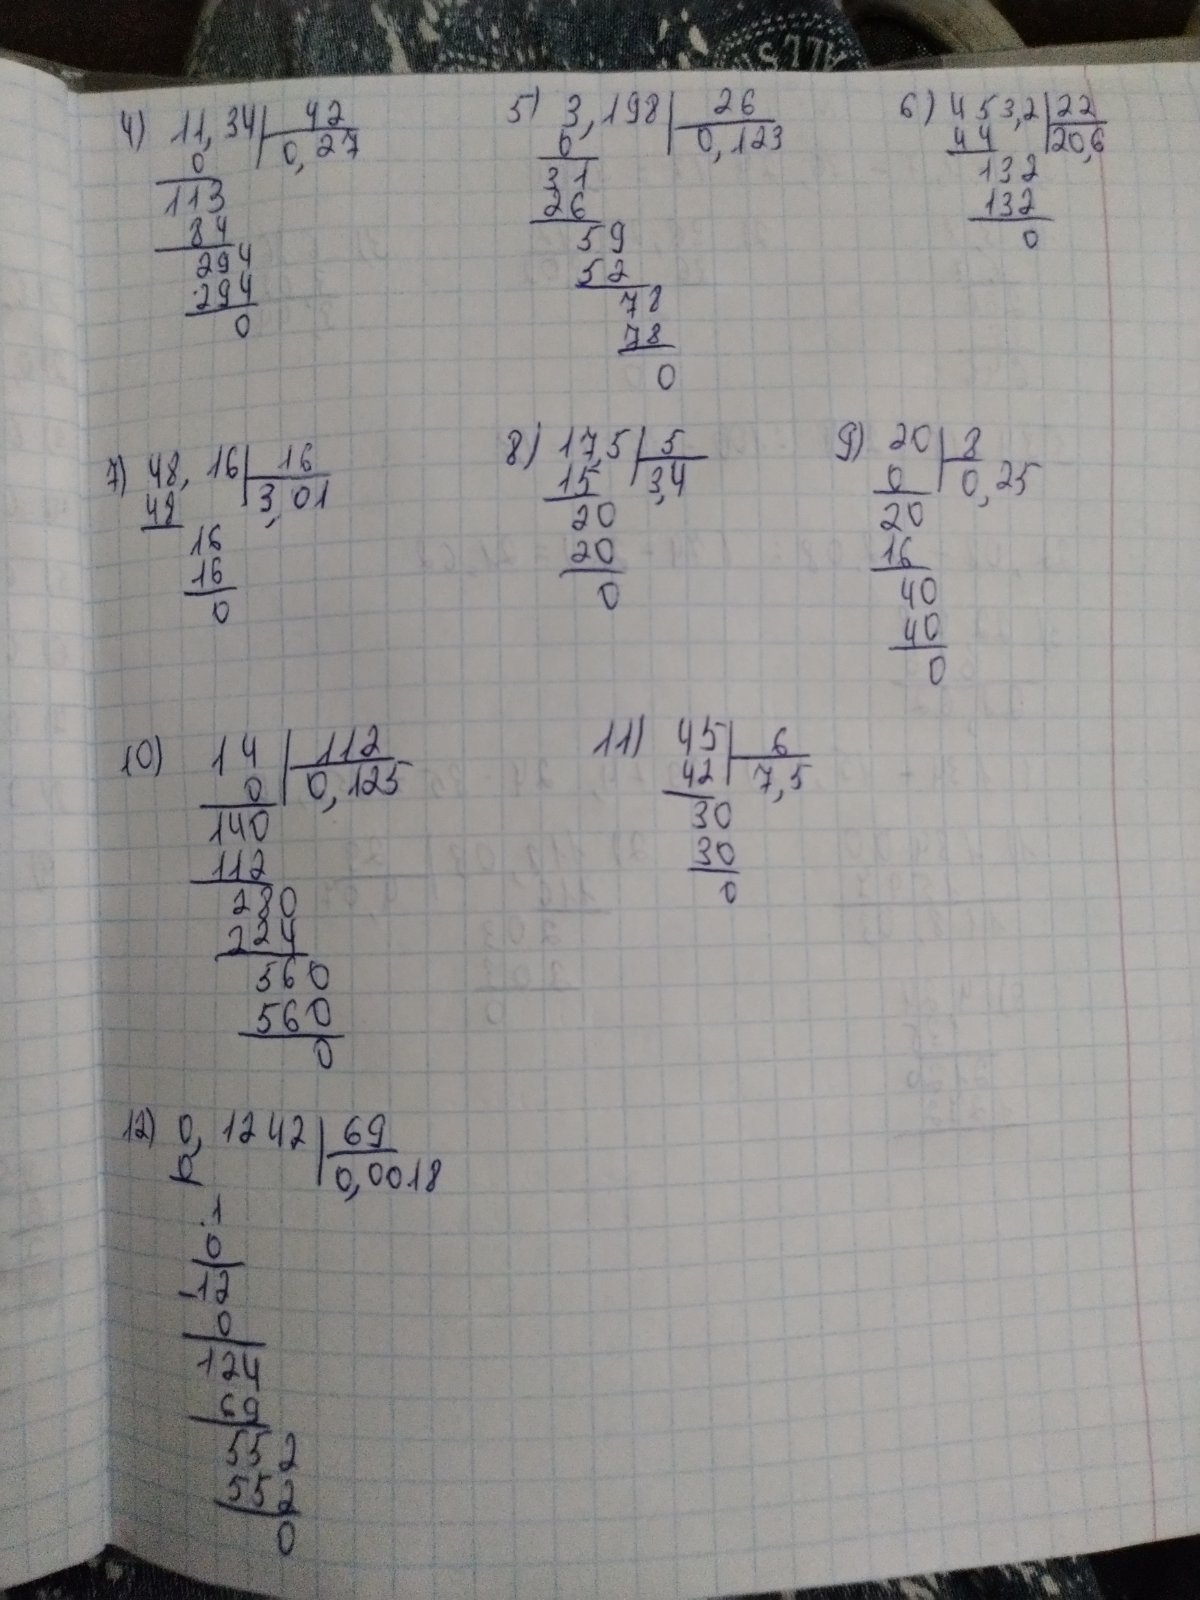 4) 11,34 | 42
0 | 0,27
113
84
294
294
0
5) 3,198 | 26
0 | 0,123
31
26
59
52
78
78
0
6) 453,2 | 22
44 | 20,6
132
132
0
7) 48,16 | 16
48 | 3,01
16
16
0
8) 17,5 | 5
15 | 3,4
20
20
0
9) 20 | 8
0 | 0,25
20
16
40
40
0
10) 14 | 112
0 | 0,125
140
112
280
224
560
560
0
11) 45 | 6
42 | 7,5
30
30
0
12) 0,1242 | 69
0 | 0,0018
1
0
-12
0
124
69
552
552
0